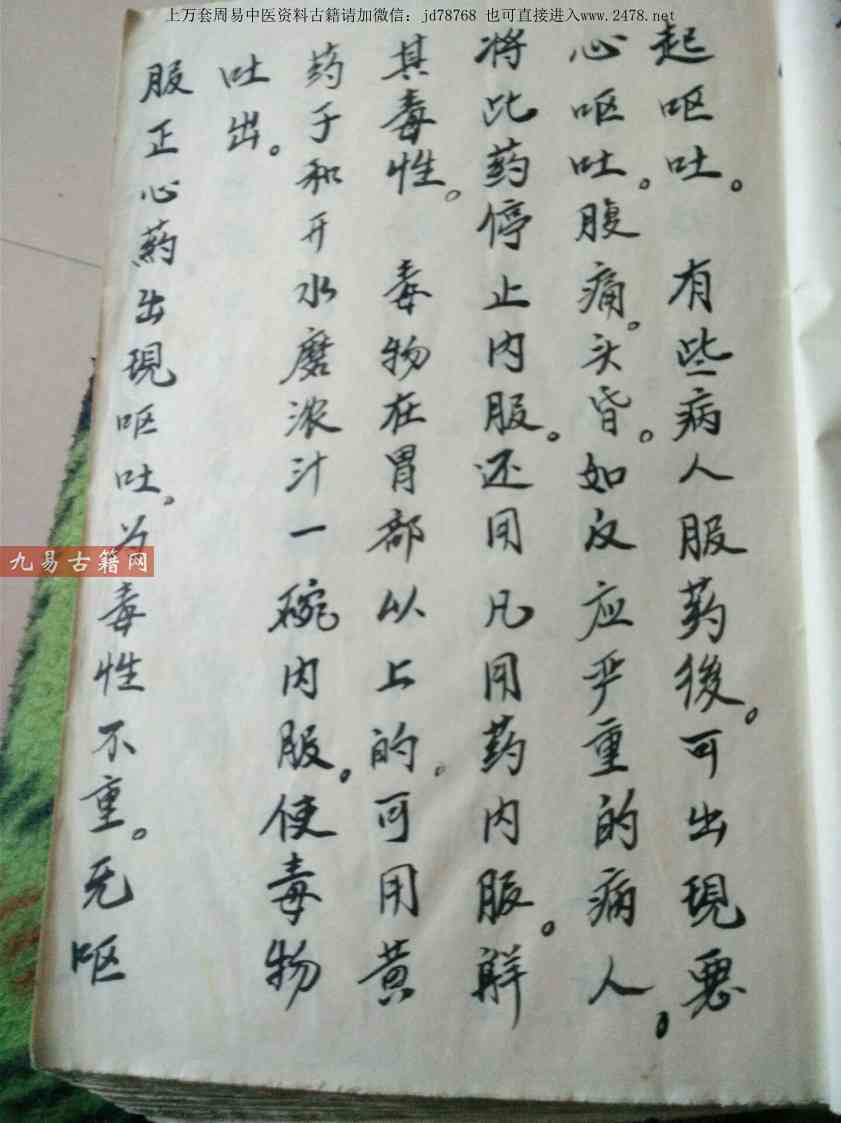 上万套周易中医资料古籍请加微信：jd78768 也可直接进入www.2478.net
起呕吐。 有些病人服药後。可出現恶
心呕吐。腹痛。头昏。如反应严重的病人。
将此药停止内服。还用凡用药内服。解
其毒性。 毒物在胃部以上的。可用黄
药子和开水磨浓汁一碗内服。使毒物
吐出。
服正心药出現呕吐。为毒性不重。无呕
九易古籍网